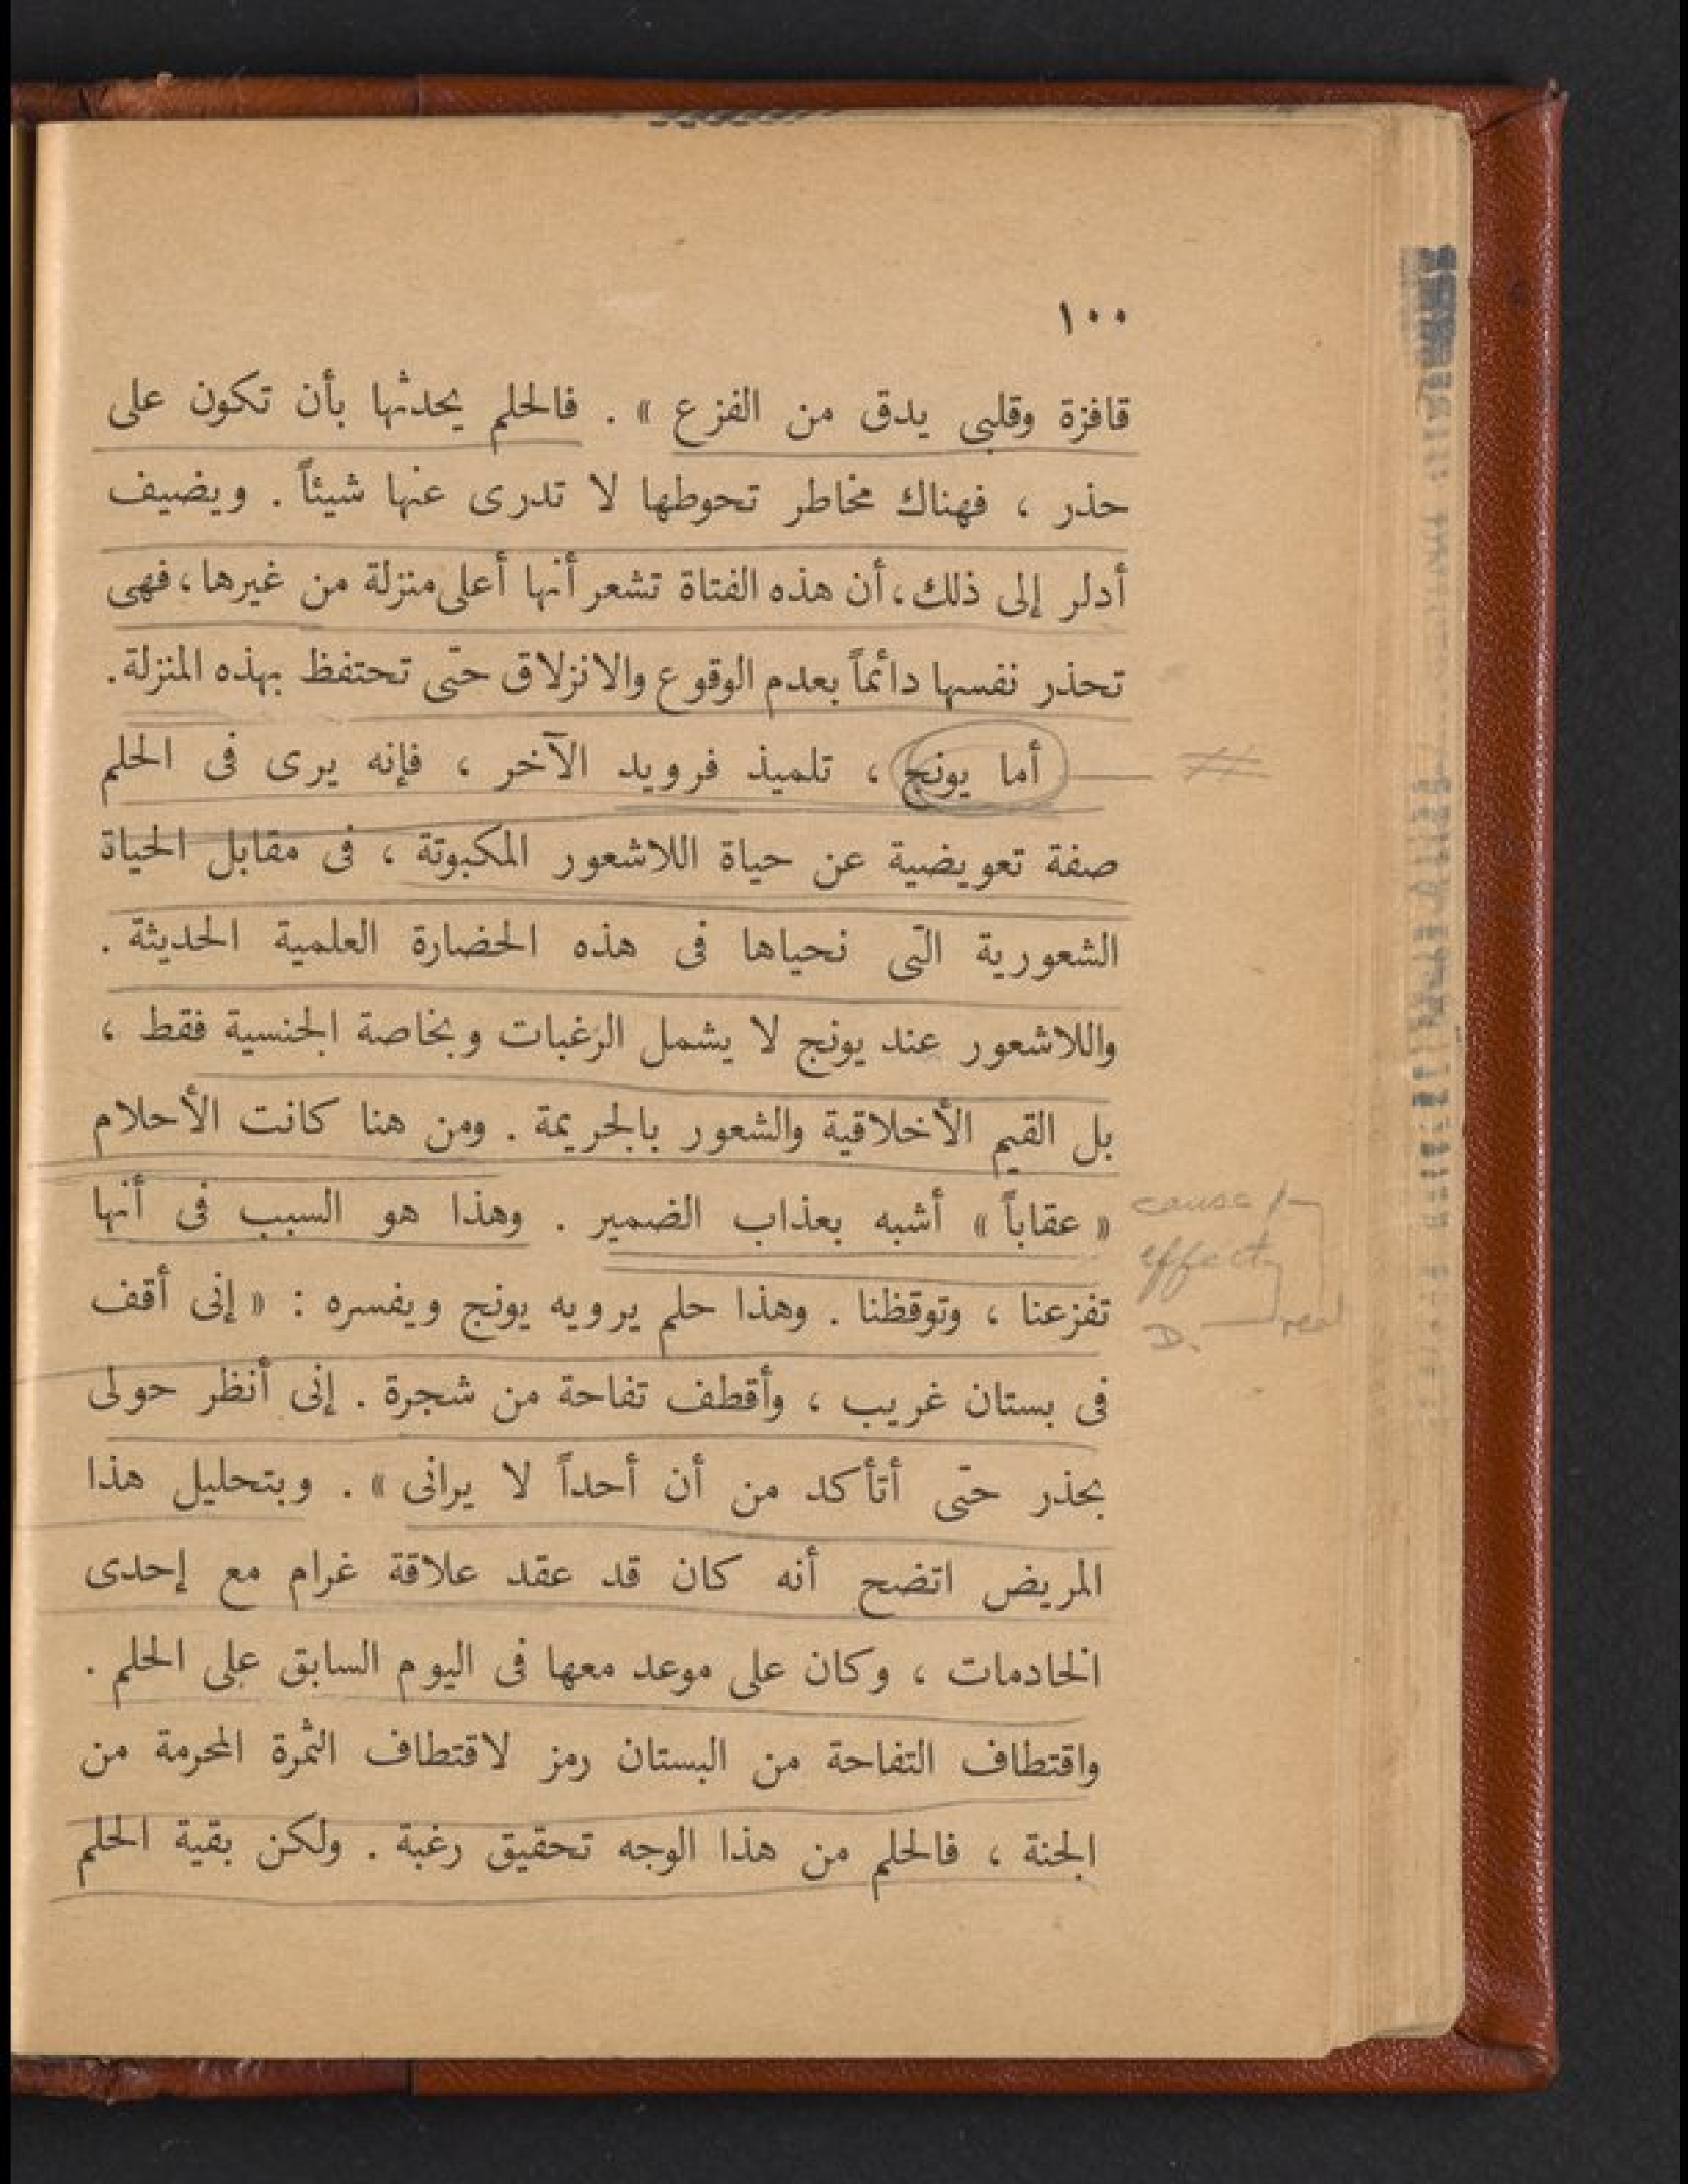 ١٠٠
قافزة وقلبى يدق من الفزع » . فالحلم يحدثها بأن تكون على
حذر ، فهناك مخاطر تحوطها لا تدرى عنها شيئاً . ويضيف
أدلر إلى ذلك، أن هذه الفتاة تشعر أنها أعلى منزلة من غيرها، فهى
تحذر نفسها دائماً بعدم الوقوع والانزلاق حتّى تحتفظ بهذه المنزلة.
أما يونج ، تلميذ فرويد الآخر ، فإنه يرى فى الحلم
صفة تعويضية عن حياة اللاشعور المكبوتة ، فى مقابل الحياة
الشعورية الّتى نحياها فى هذه الحضارة العلمية الحديثة .
واللاشعور عند يونج لا يشمل الرغبات وبخاصة الجنسية فقط ،
بل القيم الأخلاقية والشعور بالجريمة . ومن هنا كانت الأحلام
« عقاباً » أشبه بعذاب الضمير . وهذا هو السبب فى أنها
cause
تفزعنا ، وتوقظنا . وهذا حلم يرويه يونج ويفسره : « إنى أقف
effect
D. real
فى بستان غريب ، وأقطف تفاحة من شجرة . إنى أنظر حولى
بحذر حتّى أتأكد من أن أحداً لا يرانى » . وبتحليل هذا
المريض اتضح أنه كان قد عقد علاقة غرام مع إحدى
الخادمات ، وكان على موعد معها فى اليوم السابق على الحلم .
واقتطاف التفاحة من البستان رمز لاقتطاف الثمرة المحرمة من
الجنة ، فالحلم من هذا الوجه تحقيق رغبة . ولكن بقية الحلم